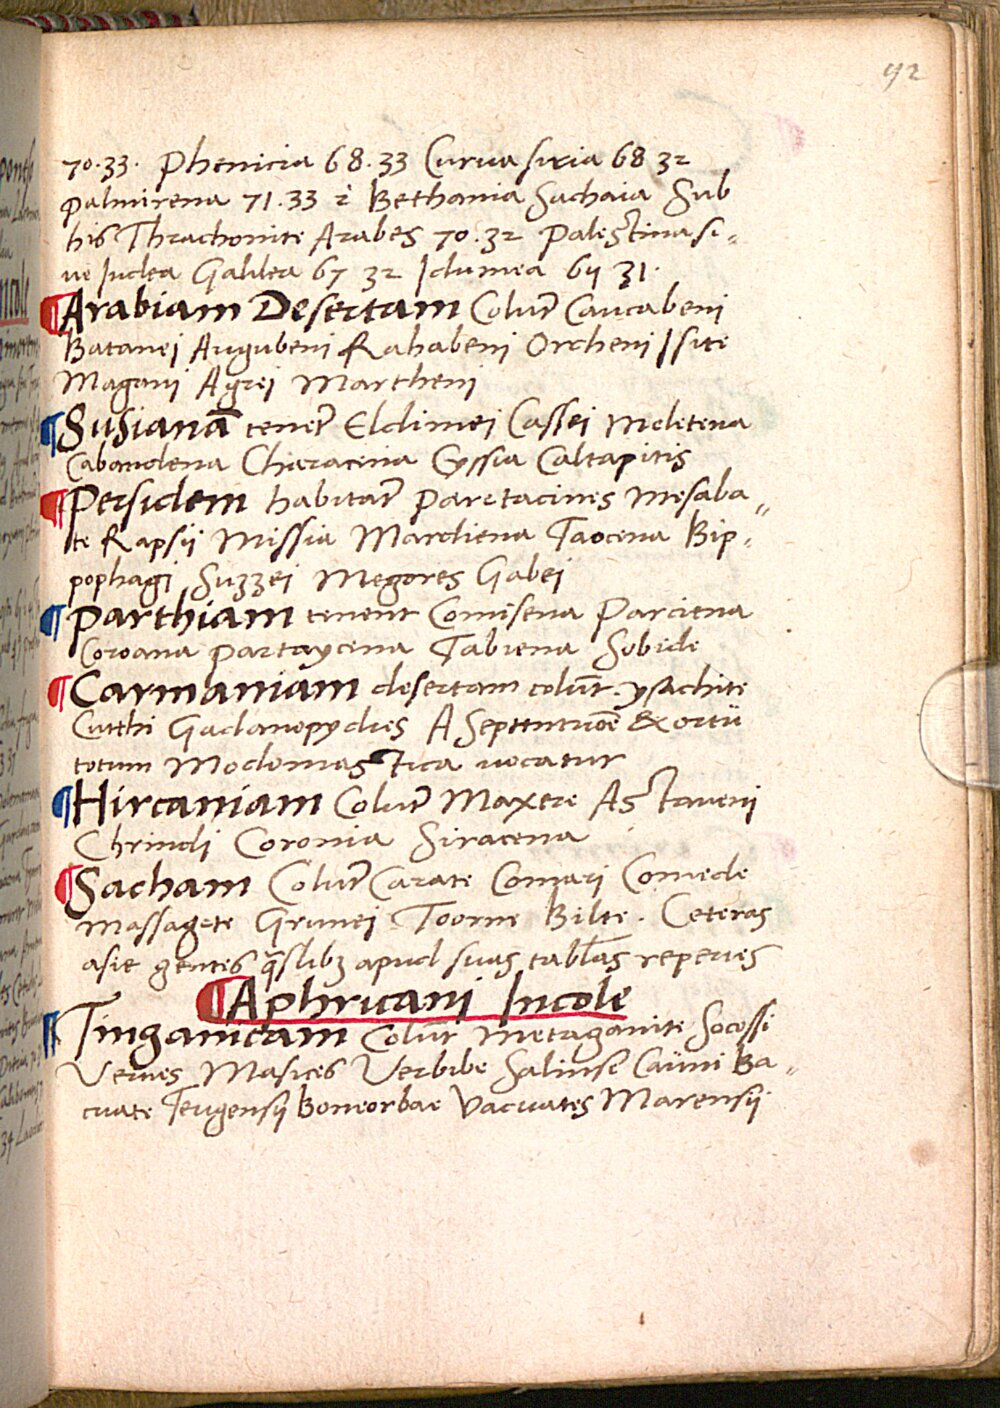 92
70.33. Phenicia 68.33 Curua siria 68 32
palmirena 71.33 2 Bethania Sachaia Sub
his Thrachonite Arabes 70.32 Palestina si„
ue Iudea Galilea 67 32 Idumea 64 31.
¶Arabiam Desertam Colūt Caucabeni
Batanei Augubeni Rahabeni Orcheni Isite
Magani Agrei Martheni
¶Susianā tenēt Eldimei Cassei Meletena
Cabandena Characena Cyssia Caltapitis
¶Persidem habitāt Paretacines Mesaba„
te Rapsij Missia Mardiena Taocena Bip„
pophagi Suzzei Megores Gabei
¶Parthiam tenent Comisena Parciena
Coroana Partaycena Tabiena Sobide
¶Carmaniam desertam colūt. ysachite
Cutthi Gadanopydies A Septentrioē & ortū
totum Modomastica uocatur
¶Hircaniam Colūt Maxere Astaueni
Chrindi Coronia Siracena
¶Sacham Colūt Carate Comari Comede
Massagete Grunei Toorne Bilte. Ceteras
asie gentes qāslibꝫ apud suas tablās reperies
¶Aphricani Incole
¶Tinganicam Colūt Metaganite Socossi
Verues Masices Verbibe Salinse Caūni Ba„
cuate Teugensij Boneorbae Vacuates Marensij